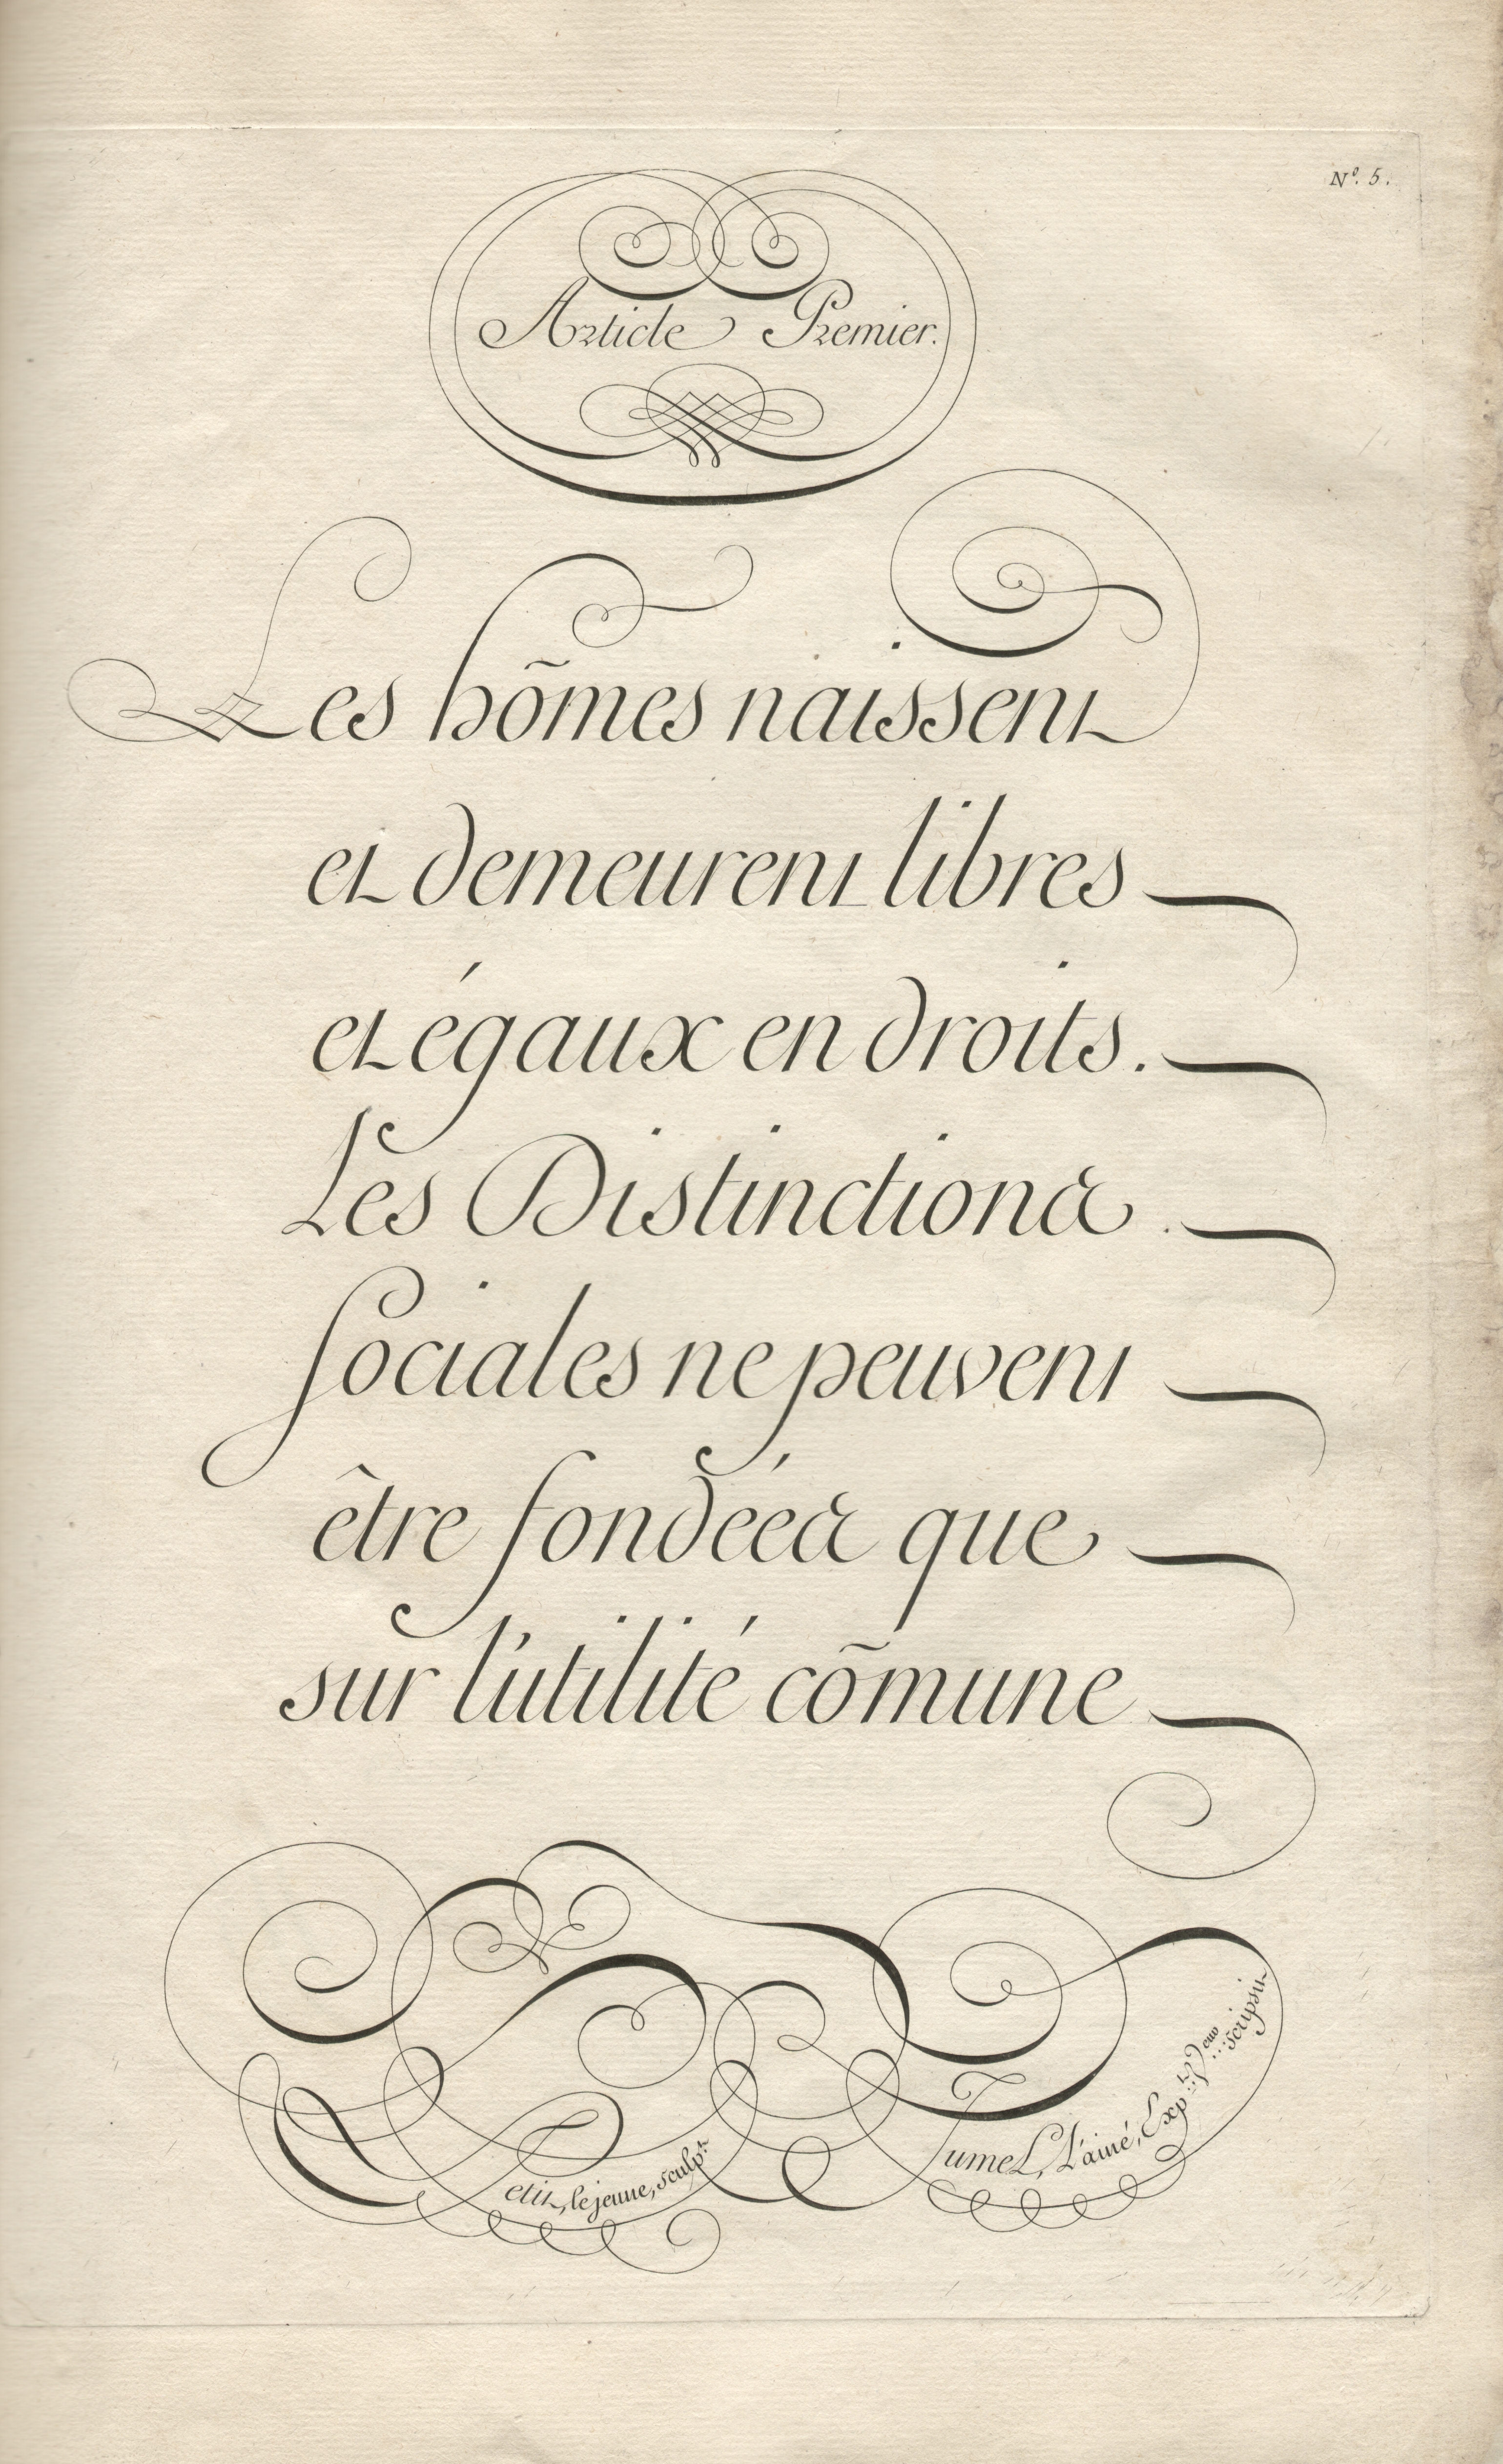 Nº. 5.
Article Premier.
Les hõmes naissent
et demeurent libres
et égaux en droits.
Les Distinctions
sociales ne peuvent
être fondées que
sur l'utilité cõmune
Petit, le jeune, sculpt.
Jumel, L'ainé, scripsit